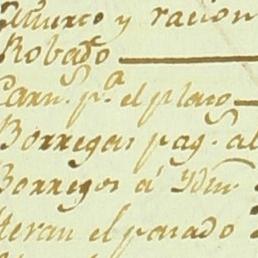 Muerto y racion
Robado
Carn. p.a el plato
Borregas pag. al
Borregos á Ydm.
el pasado